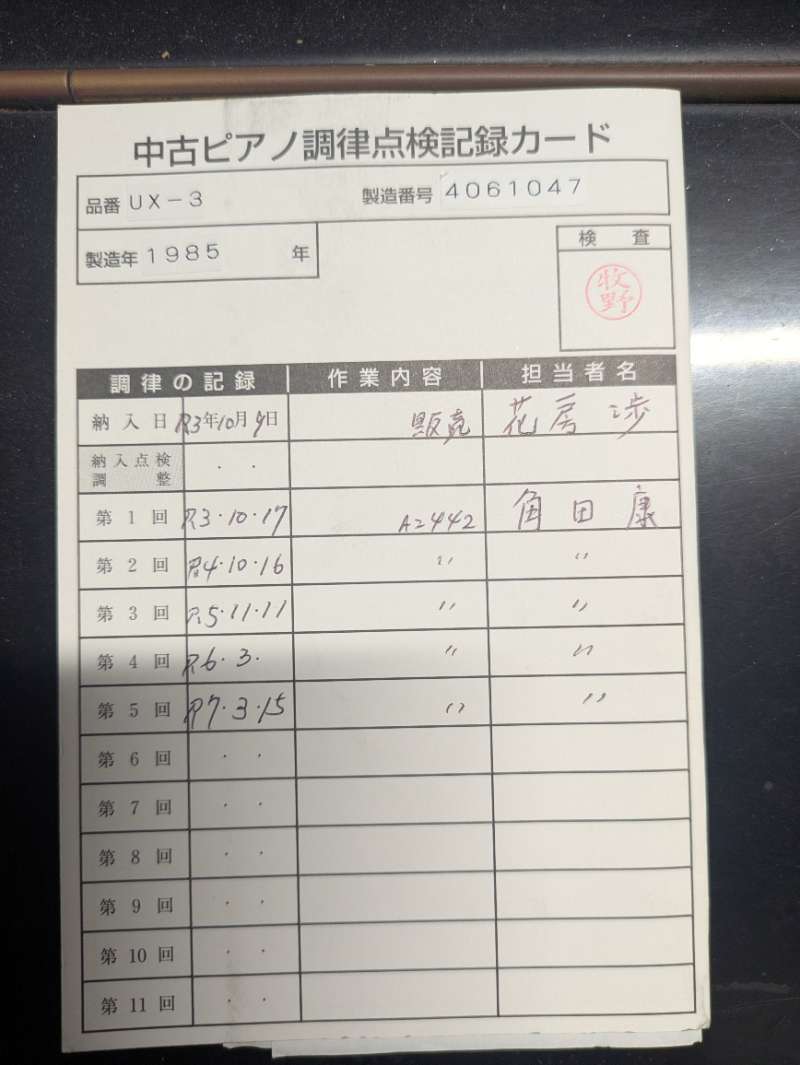 中古ピアノ調律点検記録カード
品番 UX-3 製造番号 4061047
製造年 1985 年
検査
牧野
調律の記録 作業内容 担当者名
納入日 R3年10月9日 販売 花房 渉
納入点検調整 ・ ・
第1回 R3・10・17 A=442 角田 康
第2回 R4・10・16 〃 〃
第3回 R5・11・11 〃 〃
第4回 R6・3・ 〃 〃
第5回 R7・3・15 〃 〃
第6回 ・ ・
第7回 ・ ・
第8回 ・ ・
第9回 ・ ・
第10回 ・ ・
第11回 ・ ・